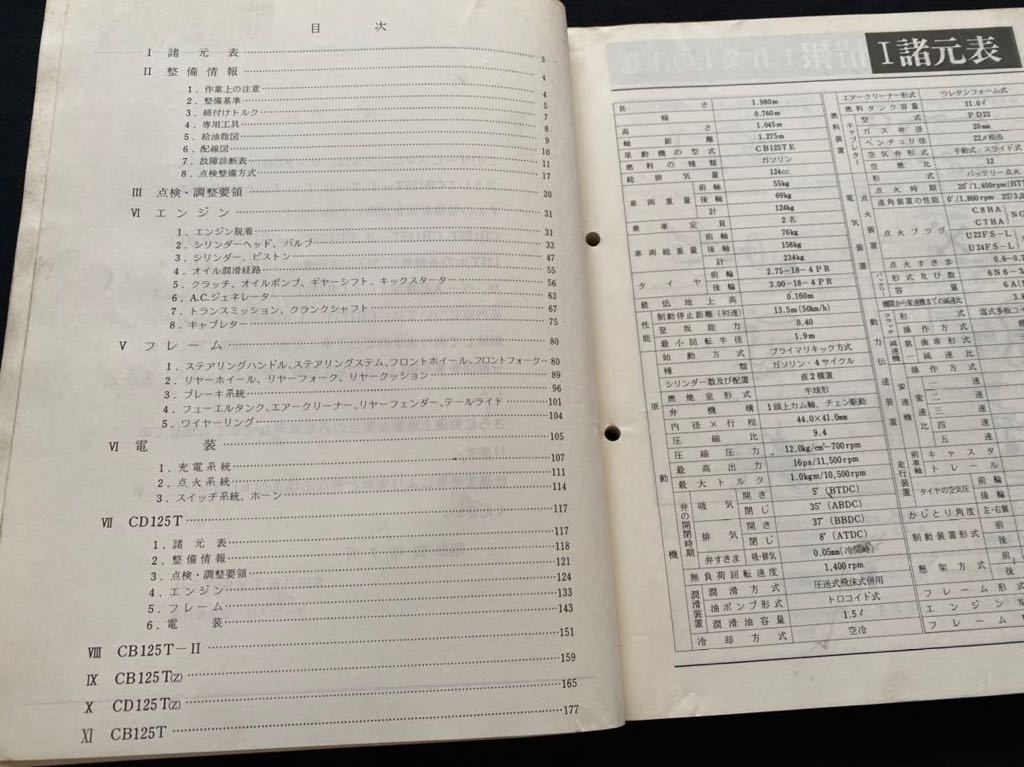 目次
I 諸元表 3
II 整備情報 4
1．作業上の注意 4
2．整備基準 5
3．締付けトルク 7
4．専用工具 8
5．給油脂図 9
6．配線図 10
7．故障診断表 11
8．点検整備方式 17
III 点検・調整要領 20
VI エンジン 31
1．エンジン脱着 31
2．シリンダーヘッド、バルブ 33
3．シリンダー、ピストン 47
4．オイル潤滑経路 55
5．クラッチ、オイルポンプ、ギヤーシフト、キックスターター 56
6．A.C.ジェネレーター 63
7．トランスミッション、クランクシャフト 67
8．キャブレター 75
V フレーム 80
1．ステアリングハンドル、ステアリングステム、フロントホイール、フロントフォーク 80
2．リヤーホイール、リヤーフォーク、リヤークッション 89
3．ブレーキ系統 96
4．フューエルタンク、エアークリーナー、リヤーフェンダー、テールライト 101
5．ワイヤーリング 104
VI 電装 105
1．充電系統 107
2．点火系統 111
3．スイッチ系統、ホーン 114
VII CD125T 117
1．諸元表 117
2．整備情報 118
3．点検・調整要領 121
4．エンジン 124
5．フレーム 133
6．電装 143
VIII CB125T－II 151
IX CB125T(Z) 159
X CD125T(Z) 165
XI CB125T 177
I 諸元表
長さ 1.980m
幅 0.760m
高さ 1.045m
軸距離 1.275m
原動機の型式 CB125TE
燃料の種類 ガソリン
総排気量 124cc
車両重量 前軸 55kg
後軸 69kg
計 124kg
乗車定員 2名
車両総重量 前軸 76kg
後軸 158kg
計 234kg
タイヤ 前輪 2.75-18-4PR
後輪 3.00-18-4PR
最低地上高 0.160m
性能 制動停止距離(初速) 13.5m(50km/h)
登坂能力 0.40
最小回転半径 1.9m
原動機
始動方式 プライマリキック方式
種類 ガソリン・4サイクル
シリンダー数及び配置 直2横置
燃焼室形式 半球形
弁機構 1頭上カム軸、チェン駆動
内径×行程 44.0×41.0mm
圧縮比 9.4
圧縮圧力 12.0kg/cm²-700rpm
最高出力 16ps/11,500rpm
最大トルク 1.0kgm/10,500rpm
弁の開閉時期 吸気 開き 5°(BTDC)
閉じ 35°(ABDC)
排気 開き 37°(BBDC)
閉じ 8°(ATDC)
弁すきま 吸・排気 0.05mm(冷間時)
無負荷回転速度 1,400rpm
潤滑装置 潤滑方式 圧送式飛沫式併用
油ポンプ形式 トロコイド式
潤滑油容量 1.5ℓ
冷却方式 空冷
燃料装置
エアークリーナー形式 ウレタンフォーム式
燃料タンク容量 11.0ℓ
キャブレター 型式 PD22
ガス弁径 20mm
ベンチュリ径 22㎜相当
空気弁形式 手動式・スライド式
空燃比 12
電気装置
点火装置 形式 バッテリー点火
点火時期 20°/1,400rpm(BT
進角装置の性能 0°/1,800rpm
点火プラグ C8HA
C7HA
U22FS-L
U24FS-L
点火すきま 0.6-0.
バッテリー 形式及び数 6N6-3
容量 6A
動力伝達装置
機関から変速機までの減速比
クラッチ 形式 湿式多板コ
操作方式
減速機 第一 歯車形式
減速比
変速機 操作方式
変速比 一速
二速
三速
四速
五速
走行装置
前車軸 キャスタ
トレール
タイヤの空気圧 前輪
後輪
かじとり角度 左・右側
制動装置形式 前
後
懸架方式 前
後
フレーム形式
エンジンN
フレーム